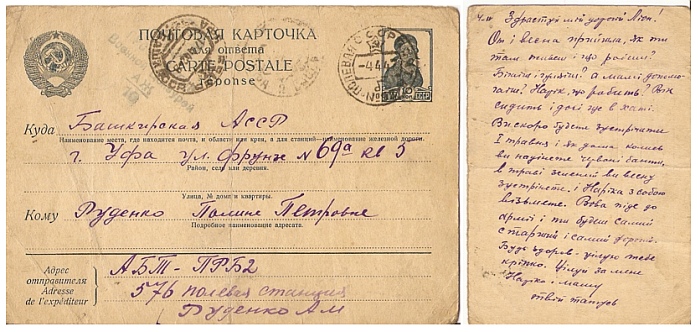 ПОЧТОВАЯ КАРТОЧКА
для ответа
CARTE POSTALE
réponse
-4.4.4
Куда Башкирская АССР
Наименование места, где находится почта, и область или край, а для станций—наименование железной дороги.
г. Уфа ул. Фрунзе № 69а кв 3
Район, село или деревня.
Улица, № дома и квартиры.
Кому Руденко Полине Петровне
Подробное наименование адресата.
Адрес отправителя
Adresse de l'expéditeur
АБТ-ПРБ2
576 полевая станция
Руденко А М
Здраствуй мій дорогий Лю!
От і весна прийшла, як ти
там живеш і що робиш?
Бігаєш і граєш? а мамі допома-
гаєш? Наріка, що робить? Він
сидить і досі ще в хаті.
Ви скоро будете зустрічати
1 травня і як давно колись
ви надінете червоні банти,
в траві зеленій ви весну
зустрінете. і Наріка з собою
візьмете. Вова піде до
армії і ти будеш самий
старший і самий
Будь здоров. цілую тебе
кріпко. Цілуй за мене
Наріка і маму
твій татусь